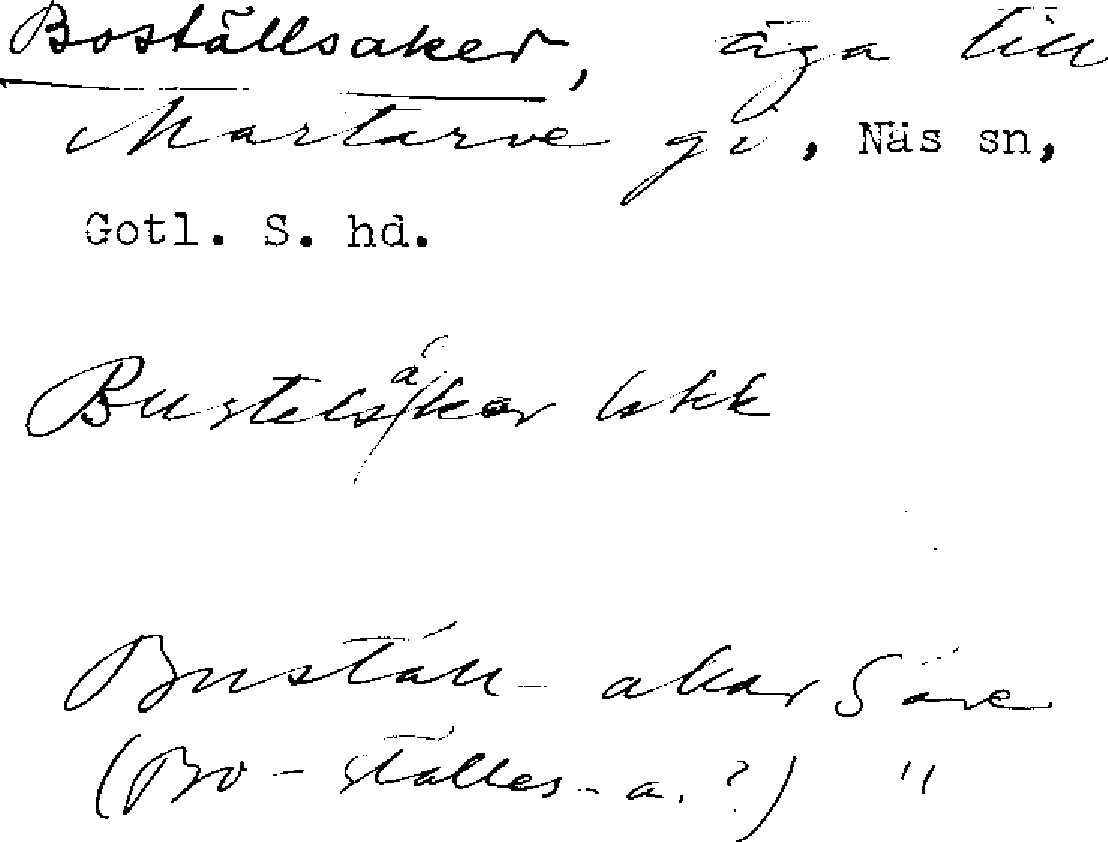 Boställsaker, äga till
Martarve gd, Näs sn,
Gotl. S. hd.
Bustelsåker
Buställ- akar Säve
(Bo- ställes- a. ?) "